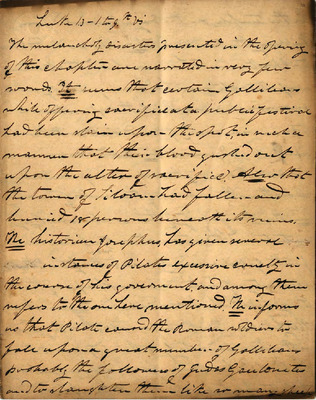 Luke 13 - 1 to 9th vs
The melancholy disasters presented in the opening
of this chapter are narrated in very few
words. It seems that certain Gallileans
while offering sacrifice at a public festival
had been slain upon the spot in such a
manner that their blood gushed out
upon the altar of sacrifice. Also that
the tower of Siloam had fallen and
buried 18 persons beneath its ruins.
The historian Josephus has given several
instances of Pilates excessive cruelty in
the course of his government, and among them
refers to the one here mentioned. He informs
us that Pilate caused the Roman soldiers to
fall upon a great number of Gallileans
probably the followers of Judas Gaulonite
and to slaughter them like so many sheep